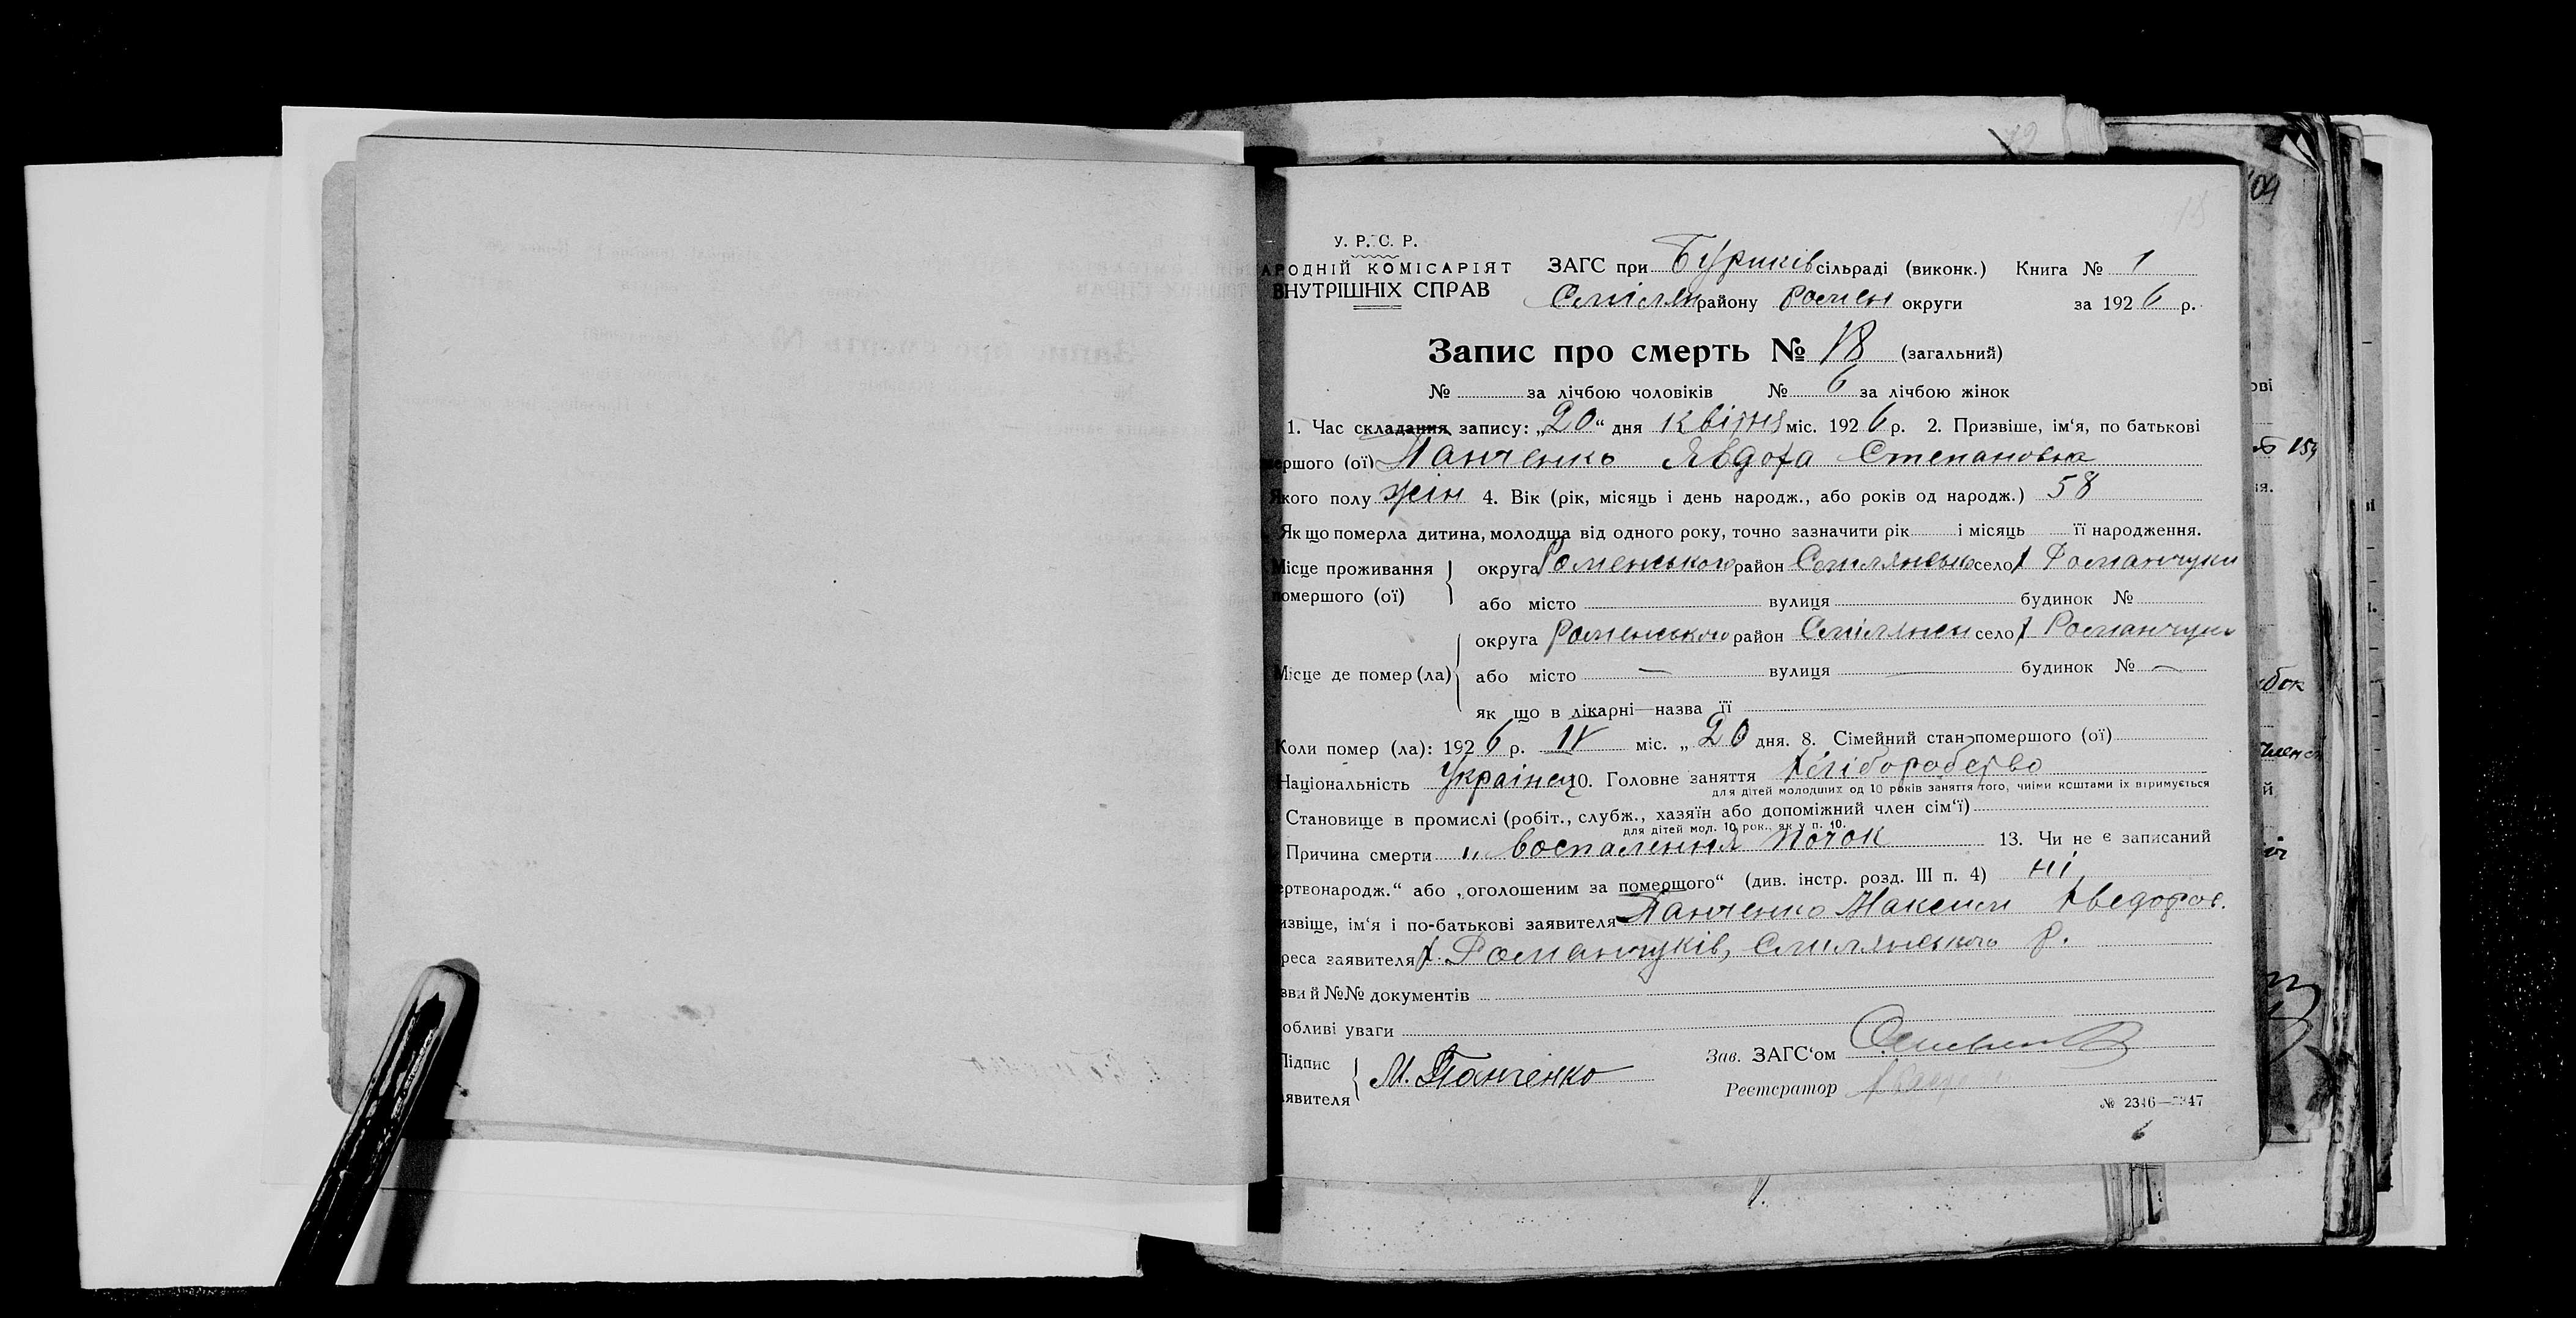 У. Р. С. Р.
АРОДНІЙ КОМІСАРІЯТ
ВНУТРІШНІХ СПРАВ
ЗАГС при Буриків сільраді (виконк.) Книга № 1
Смілян району Ромен округи за 1926 р.
Запис про смерть № 18 (загальний)
№ за лічбою чоловіків № 6 за лічбою жінок
1. Час складання запису: „20“ дня квітня міс. 1926 р. 2. Призвіше, ім‘я, по батькові
мершого (ої) Панченко Явдоха Степановна
Якого полу жін 4. Вік (рік, місяць і день народж., або років од народж.) 58
Як що померла дитина, молодща від одного року, точно зазначити рік і місяць її народження.
Місце проживання помершого (ої) округа Роменського район Смілянсько село х Романчуки
або місто вулиця будинок №
Місце де помер (ла) округа Роменського район Смілянськ село х Романчуки
або місто — вулиця — будинок № —
як що в лікарні—назва її
Коли помер (ла): 1926 р. IV міс. „20 дня. 8. Сімейний стан помершого (ої)
Національність Українец 10. Головне заняття хліборобство
для дітей молодших од 10 років заняття того, чиїми коштами їх втримується
Становище в промислі (робіт., служб., хазяїн або допоміжний член сім‘ї)
для дітей мол. 10 рок., як у п. 10.
Причина смерти „ воспалення почок 13. Чи не є записаний
ертвонародж.“ або „оголошеним за померщого“ (див. інстр. розд. III п. 4) ні
ізвіще, ім‘я і по-батькові заявителя Панченко Максим
реса заявителя х. Романчуків, Смілянського р.
зви й №№ документів
обливі уваги
Підпис
аявителя
М. Панченко
Зав. ЗАГС‘ом
Реєстратор
№ 2346—2347
104
№ 154